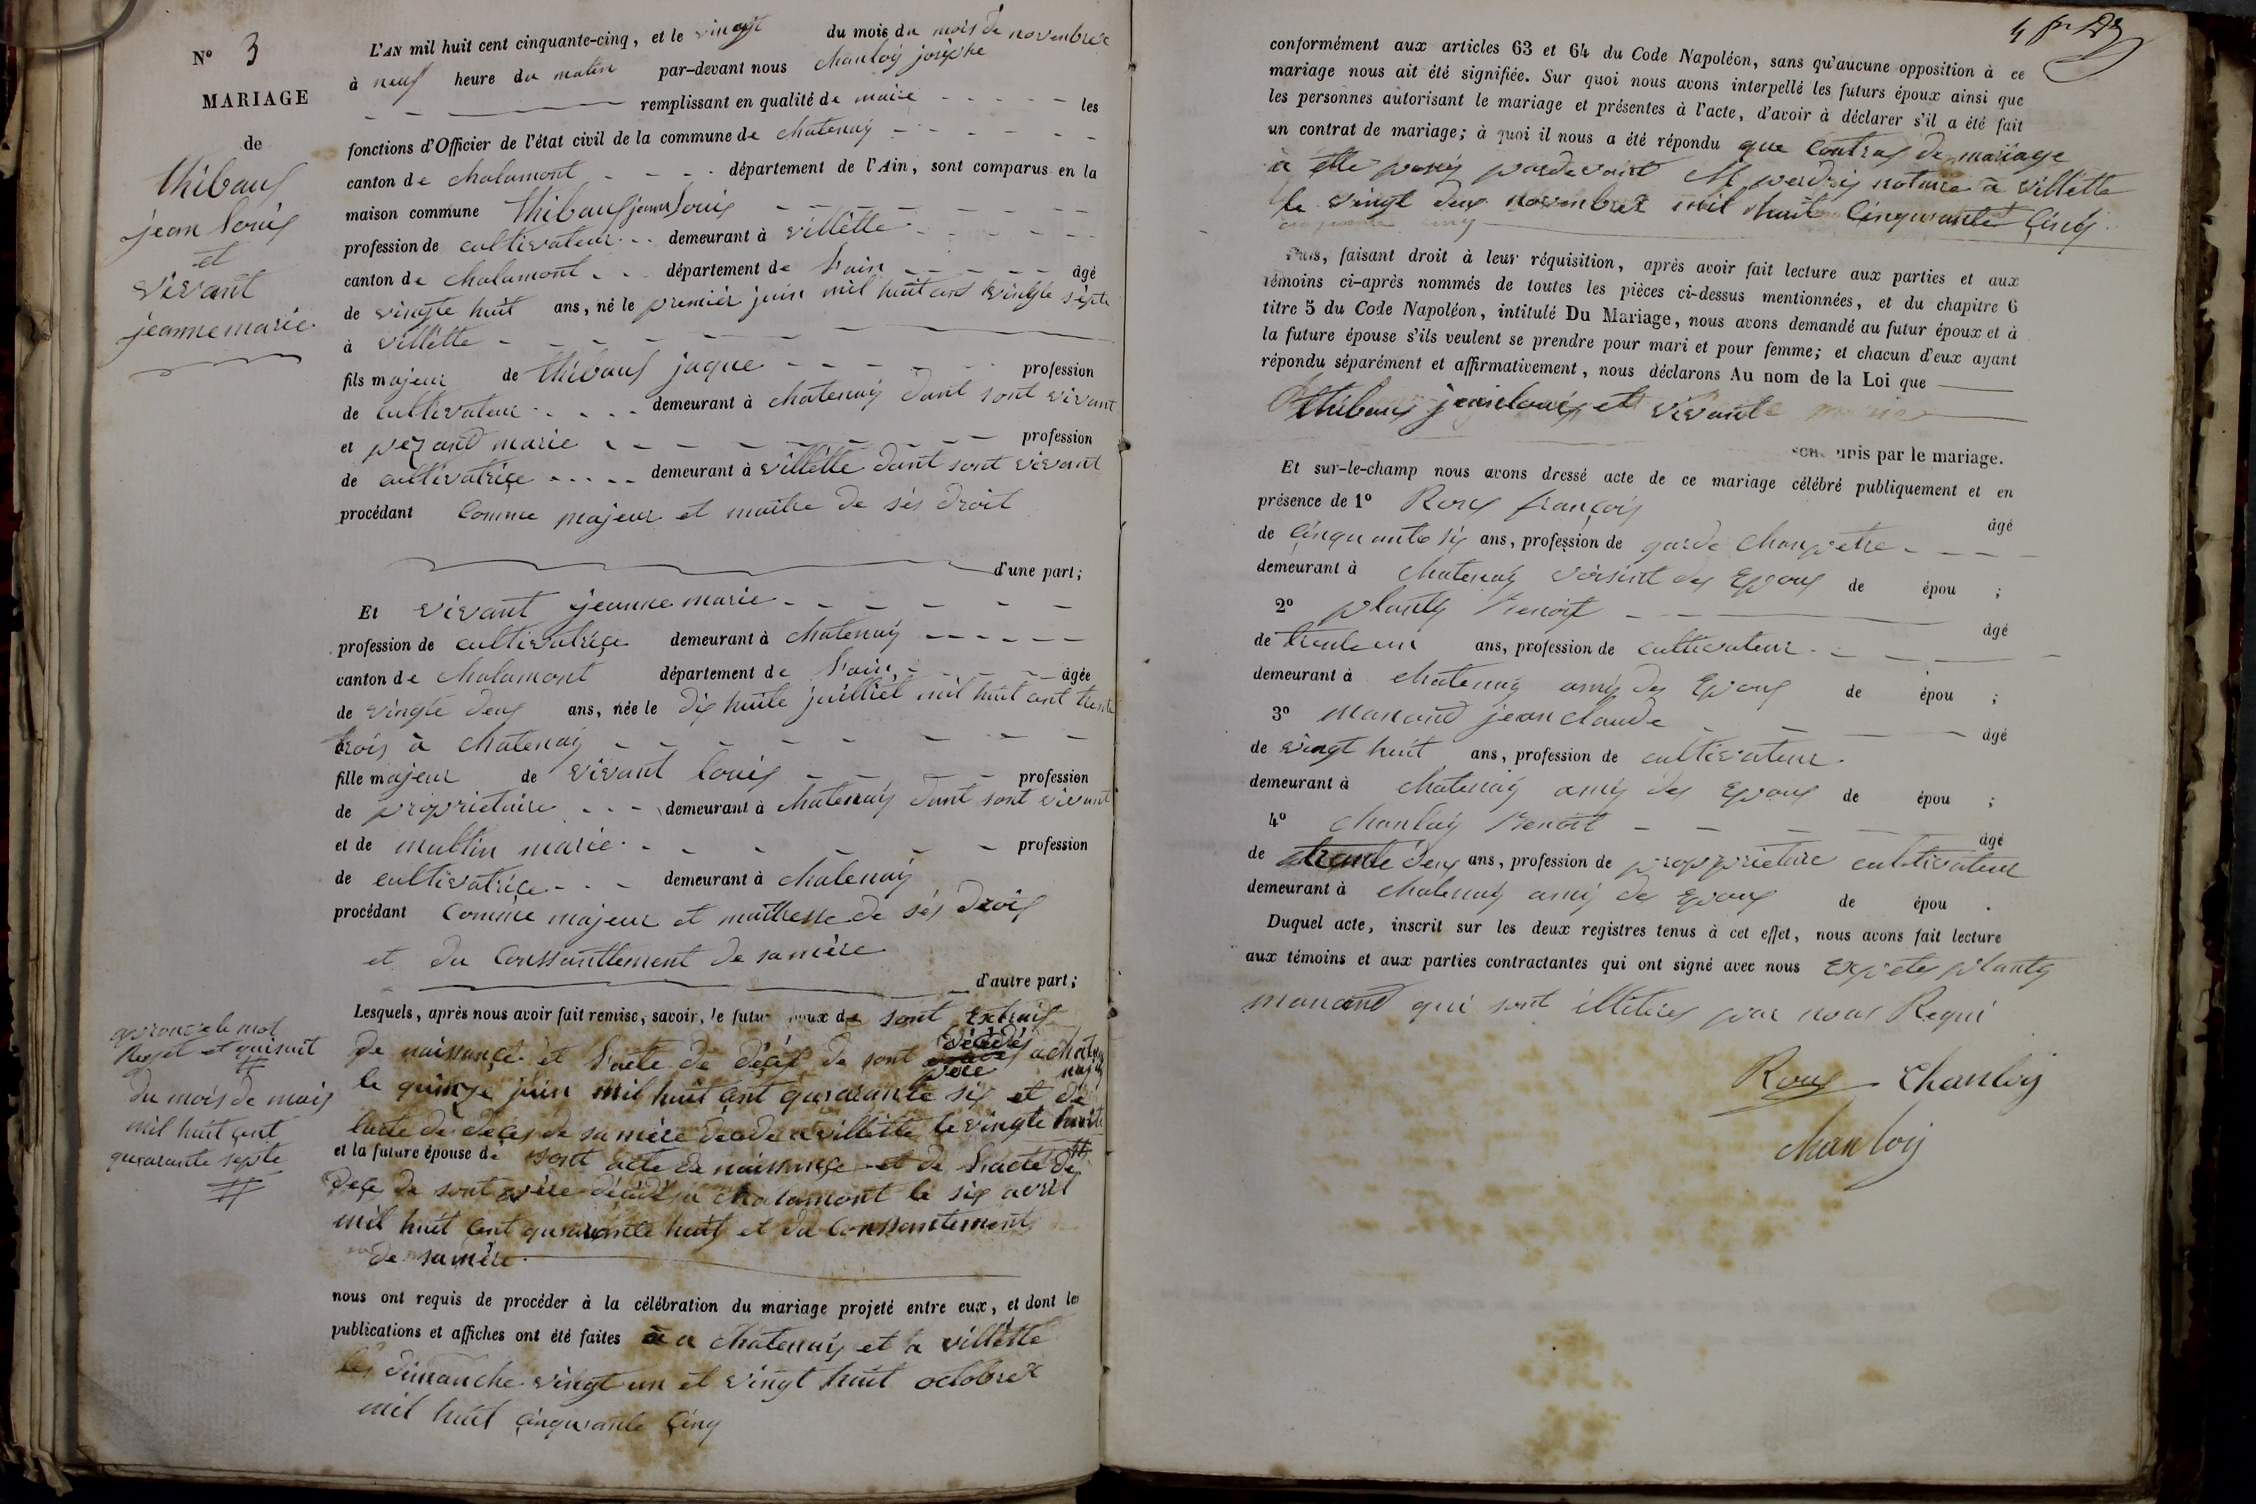 N° 3
MARIAGE
de
thibaux
jean louis
et
vivant
jeanne marie
L'AN mil huit cent cinquante-cinq, et le vingt du mois du mois de novembre
à neuf heure du matin par-devant nous chanloy josèphe
remplissant en qualité de maire les
fonctions d'Officier de l'état civil de la commune de chatenay
canton de chalamont département de l'Ain, sont comparus en la
maison commune thibaux jean louis
profession de cultivateur demeurant à villette
canton de chalamont département de l'ain âgé
de vingte huit ans, né le premier juin mil huit cent vingte septe
à villette
fils majeur de thibaux jaque profession
de cultivateur demeurant à chatenay dant sont vivant
et pezant marie profession
de cultivatriçe demeurant à villette dant sont vivant
procédant Comme majeur et maitre de sés droit
d'une part;
Et vivant jeanne marie
profession de cultivatriçe demeurant à chatenay
canton de chalamont département de l'ain âgée
de vingte deux ans, née le dix huite juilliet mil huit cent trente
trois à chatenay
fille majeur de vivant louis profession
de proprietaire demeurant à chatenay dant sont vivant
et de multin marie profession
de cultivatriçe demeurant à chatenay
procédant Comme majeur et maitresse de sés droit
et du Conssanttement de samère
d'autre part;
Lesquels, après nous avoir fait remise, savoir, le futur époux de sont Extrait
de naissançe et l'acte de décès de sont père décédé a chatenay
le quinze juin mil huit cent quaraante six et de
lacte de décès de sa mère décédé a villette le vingte huite #
et la future épouse de sont acte de naissançe et de l'acte de
décès de sont père décédé a chalamont le six avril
mil huit cent quaraante huit et du Conssantement
de samère
approuvé le mot
et qui suit
#
du mois de mais
mil huit cent
quaraante septe
#
nous ont requis de procéder à la célébration du mariage projeté entre eux, et dont les
publications et affiches ont été faites a chatenay et a villette
les dimanche vingt un et vingt huit octobre
mil huit çinquante çinq
conformément aux articles 63 et 64 du Code Napoléon, sans qu'aucune opposition à ce
mariage nous ait été signifiée. Sur quoi nous avons interpellé les futurs époux ainsi que
les personnes autorisant le mariage et présentes à l'acte, d'avoir à déclarer s'il a été fait
un contrat de mariage; à quoi il nous a été répondu que Contrat de mariage
a été passé pardevant M perdrix notaire a villette
le vingt deux novembre mil huit Çinquante Çinq
Puis, faisant droit à leur réquisition, après avoir fait lecture aux parties et aux
témoins ci-après nommés de toutes les pièces ci-dessus mentionnées, et du chapitre 6
titre 5 du Code Napoléon, intitulé Du Mariage, nous avons demandé au futur époux et à
la future épouse s'ils veulent se prendre pour mari et pour femme; et chacun d'eux ayant
répondu séparément et affirmativement, nous déclarons Au nom de la Loi que
thibaux jean louis et vivant marie
sont unis par le mariage.
Et sur-le-champ nous avons dressé acte de ce mariage célébré publiquement et en
présence de 1° Roux françois
âgé
de çinquante six ans, profession de garde Champetre
demeurant à chatenay voisint des Epoux de épou ;
2° planty Benoit
âgé
de trente un ans, profession de cultivateur
demeurant à chatenay amis des Epoux de épou ;
3° manant jean claude
âgé
de vingt huit ans, profession de cultivateur
demeurant à chatenay amis des Epoux de épou ;
4° chanloy Benoit
âgé
de trente deux ans, profession de propprietaire cultivateur
demeurant à chatenay amis des Epoux de épou .
Duquel acte, inscrit sur les deux registres tenus à cet effet, nous avons fait lecture
aux témoins et aux parties contractantes qui ont signé avec nous Exseptes planty
manant qui sont illitires par nous Requi
Roux Chanloy
chanloy